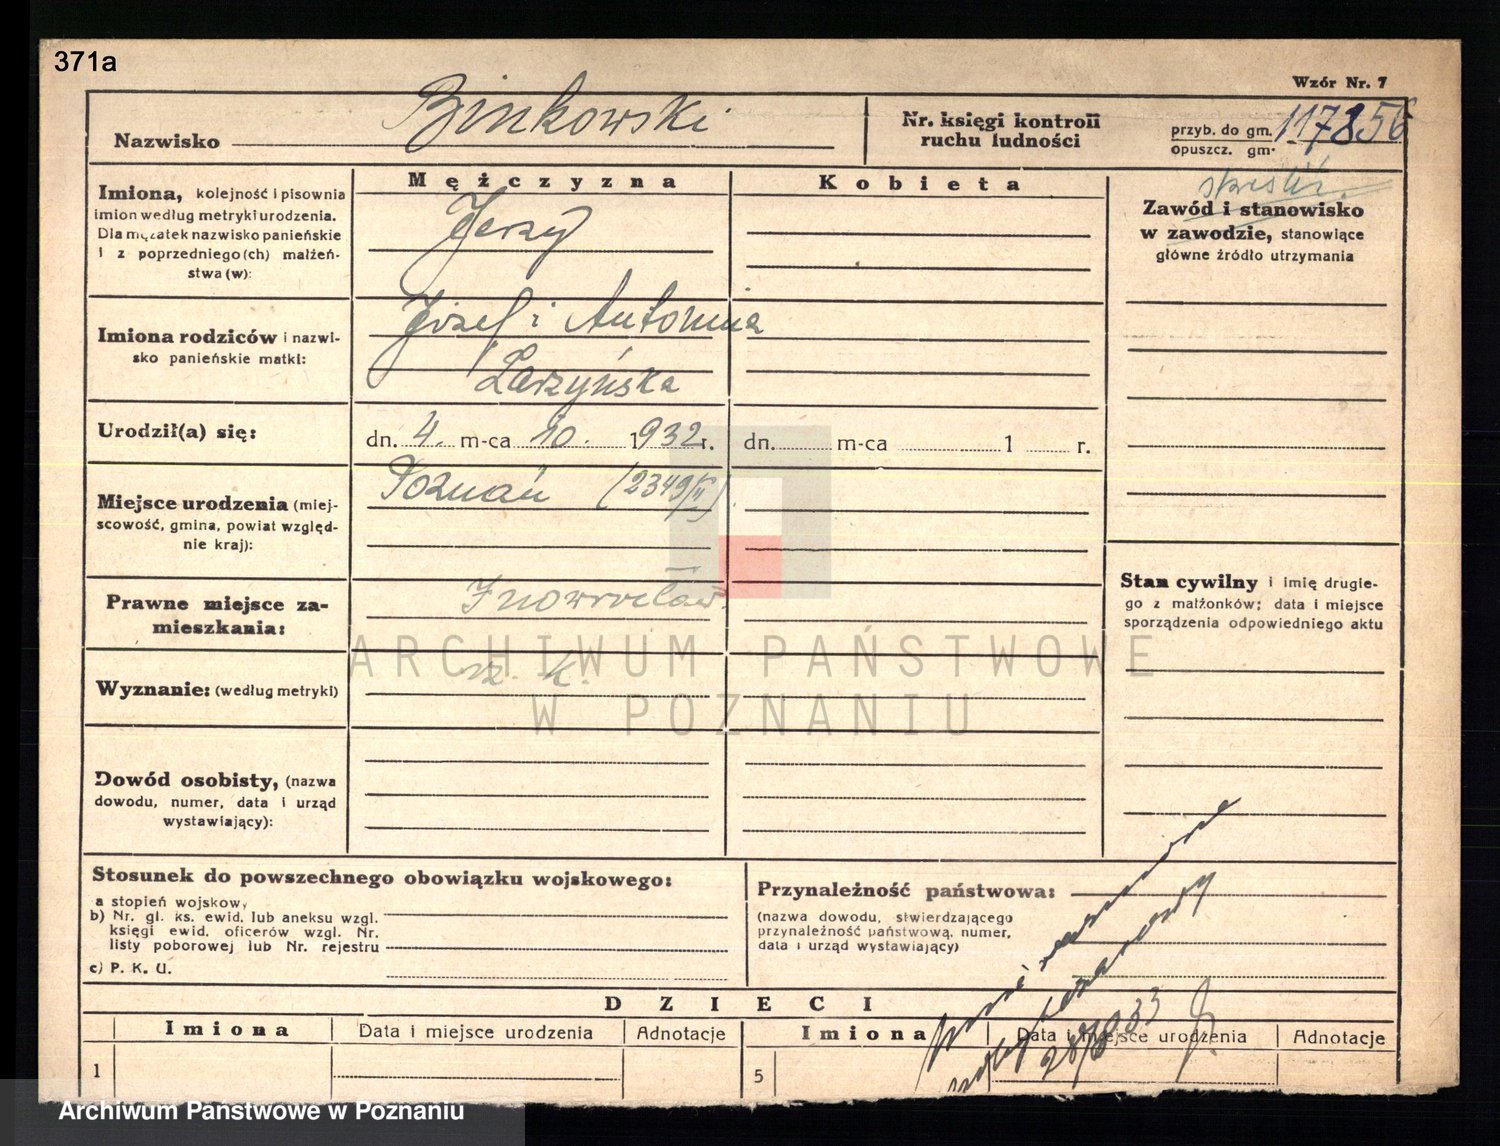 371a
Wzór Nr. 7
Nazwisko Binkowski
Nr. księgi kontroli
ruchu ludności
przyb. do gm. 117856
opuszcz. gm.
Mężczyzna
Kobieta
Imiona, kolejność i pisownia
imion według metryki urodzenia.
Dla mężatek nazwisko panieńskie
i z poprzedniego(ch) małżeń-
stwa (w):
Jerzy
Zawód i stanowisko
w zawodzie, stanowiące
główne źródło utrzymania
Imiona rodziców i nazwi-
sko panieńskie matki:
Józef i Antonina
Larzyńska
Urodził(a) się:
dn. 4. m-ca 10. 1932 r.
dn. m-ca 1 r.
Miejsce urodzenia (miej-
scowość, gmina, powiat względ-
nie kraj):
Poznań (2349/II)
Stan cywilny i imię drugie-
go z małżonków; data i miejsce
sporządzenia odpowiedniego aktu
Prawne miejsce za-
mieszkania:
Inowrocław
ARCHIWUM PAŃSTWOWE
W POZNANIU
Wyznanie: (według metryki)
rz. k.
Dowód osobisty, (nazwa
dowodu, numer, data i urząd
wystawiający):
Stosunek do powszechnego obowiązku wojskowego:
a stopień wojskowy
b) Nr. gl. ks. ewid. lub aneksu wzgl.
księgi ewid. oficerów wzgl. Nr.
listy poborowej lub Nr. rejestru
c) P. K. U.
Przynależność państwowa:
(nazwa dowodu, stwierdzającego
przynależność państwową, numer,
data i urząd wystawiający)
DZIECI
Imiona
Data i miejsce urodzenia
Adnotacje
Imiona
Data i miejsce urodzenia
Adnotacje
1
5
Archiwum Państwowe w Poznaniu